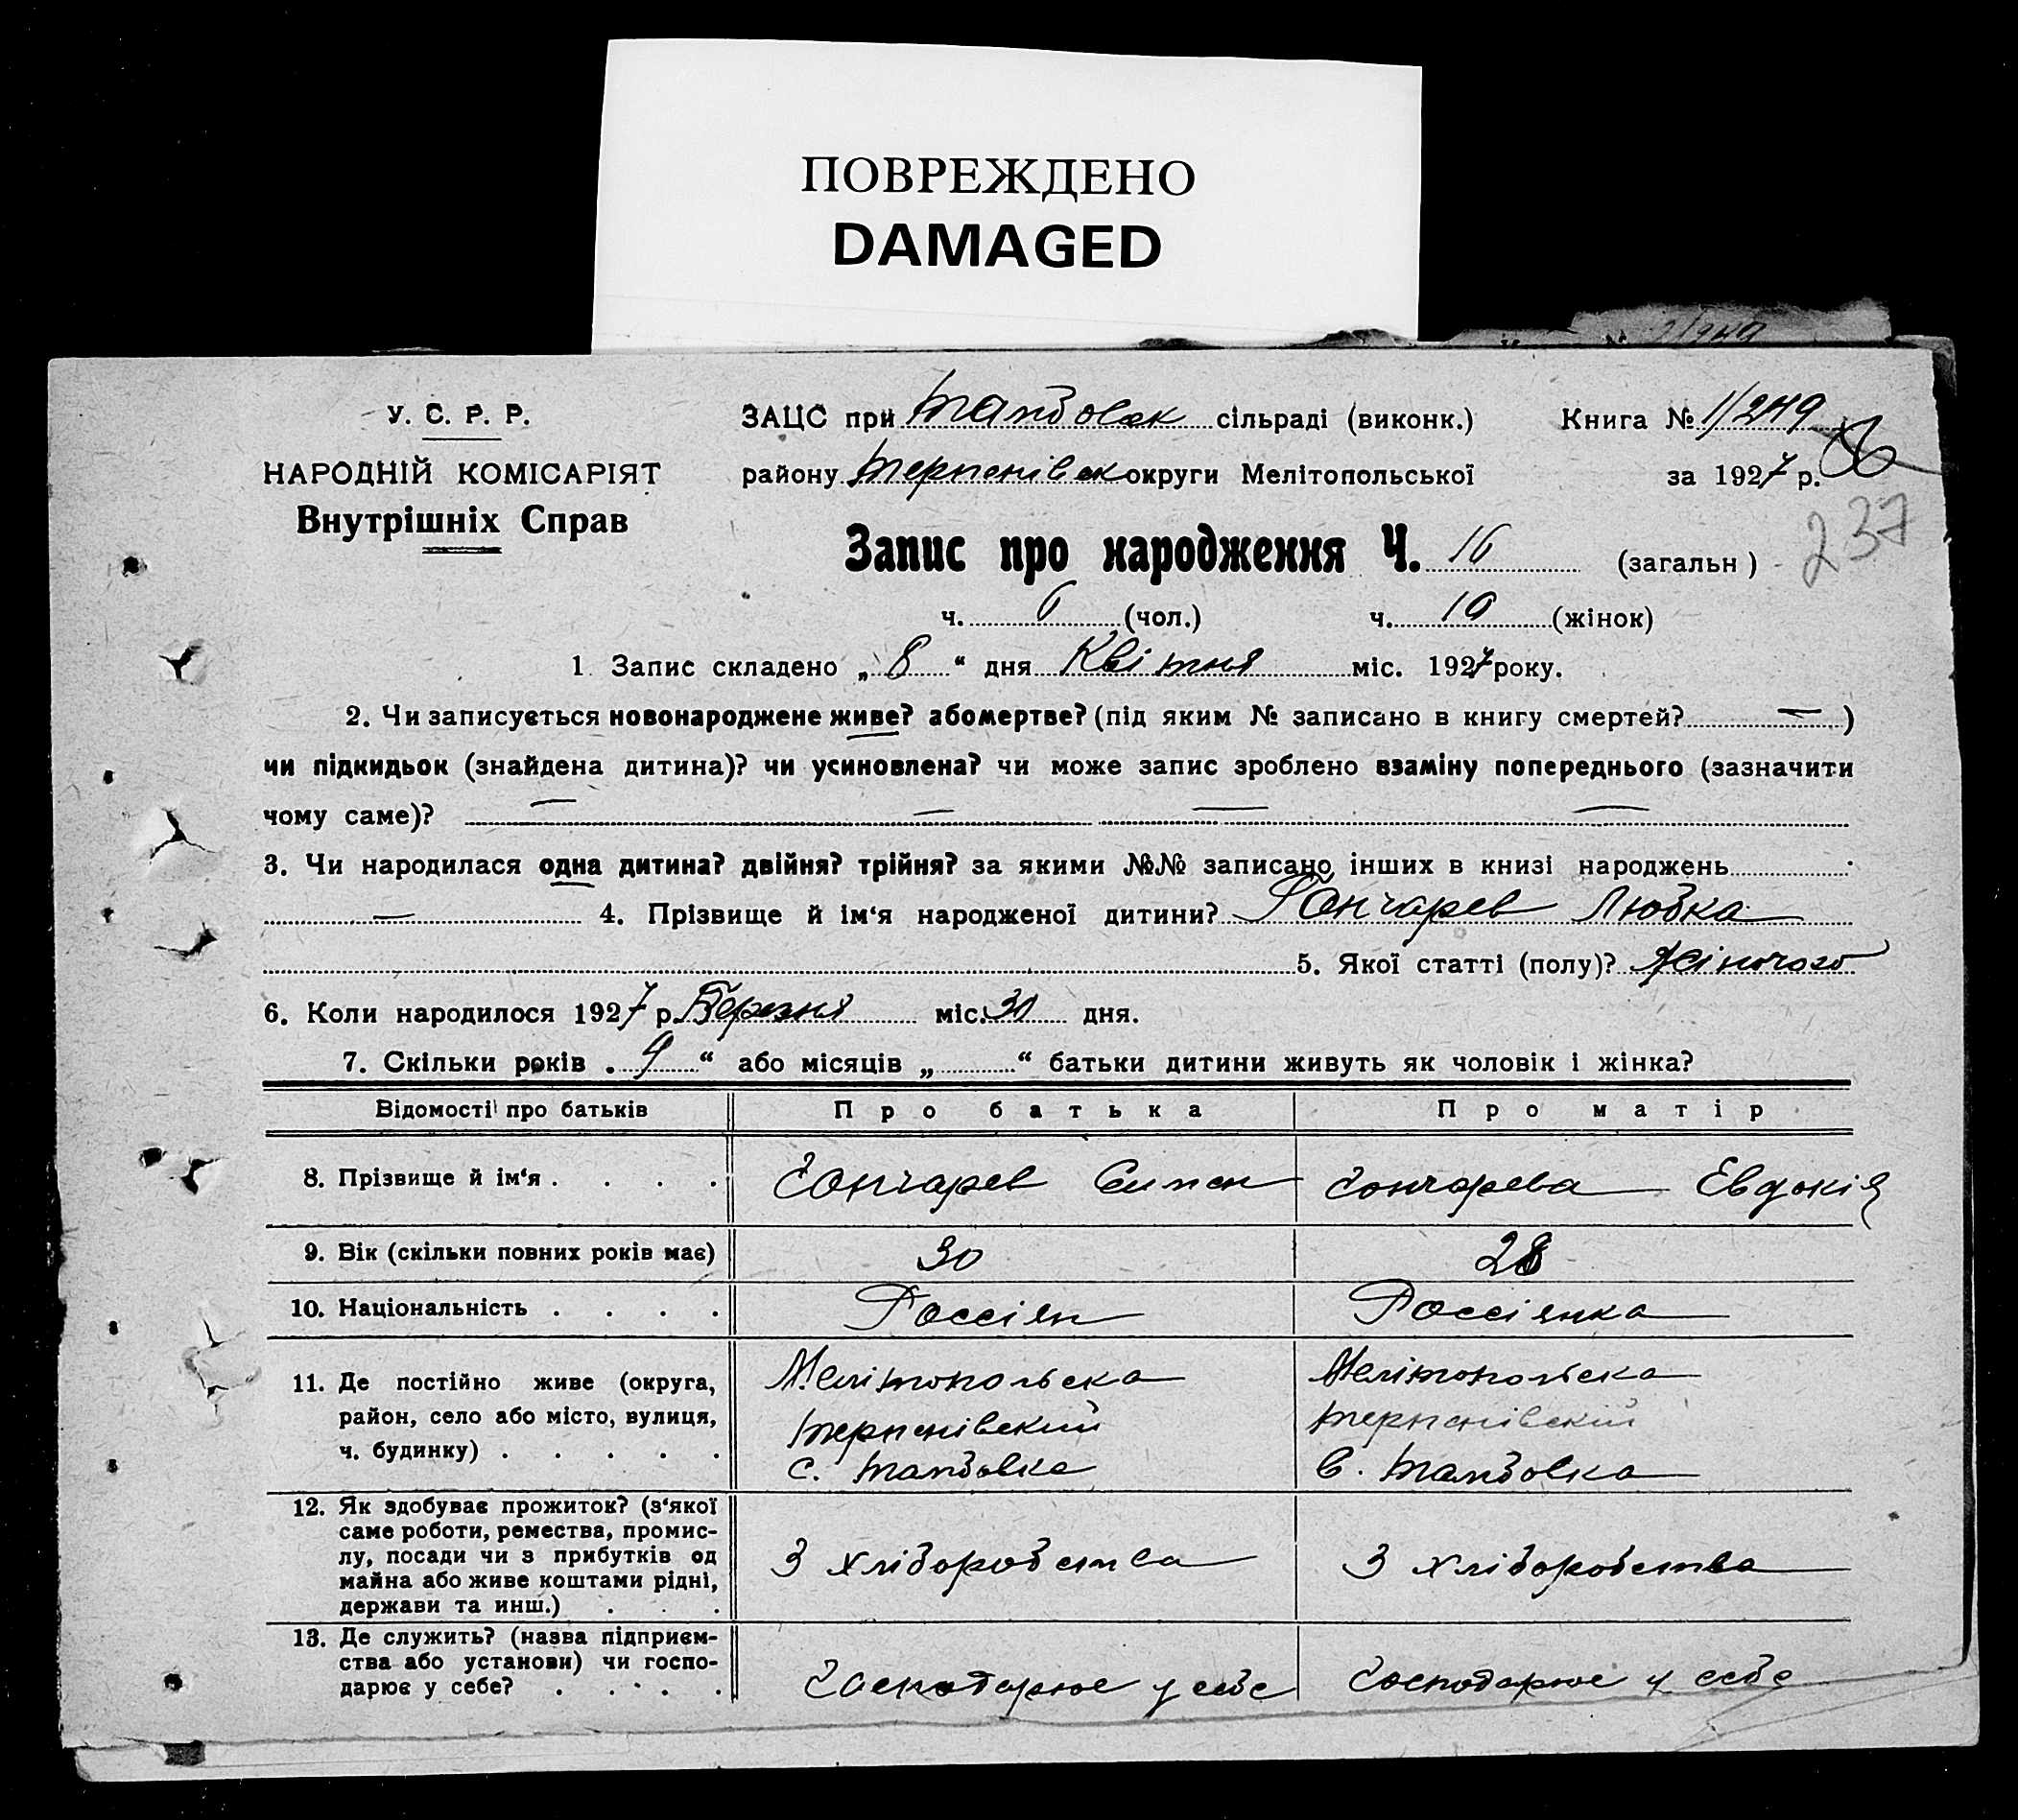 ПОВРЕЖДЕНО
DAMAGED
У. С. Р. Р.
НАРОДНІЙ КОМІСАРІЯТ
Внутрішніх Справ
ЗАЦС при Тамбовск сільраді (виконк.)
Книга № 1/249
району Терпенівск округи Мелітопольської
за 1927 р.
237
Запис про народження Ч. 16 (загальн)
ч. 6 (чол.) ч. 10 (жінок)
1 Запис складено „ 8 “ дня Квітня міс. 1927 року.
2. Чи записується новонароджене живе? або мертве? (під яким № записано в книгу смертей? — )
чи підкидьок (знайдена дитина)? чи усиновлена? чи може запис зроблено взаміну попереднього (зазначити
чому саме)? — — — —
3. Чи народилася одна дитина? двійня? трійня? за якими №№ записано інших в книзі народжень
— 4. Прізвище й ім‘я народженої дитини? Гончарев Любка
5. Якої статті (полу)? Жіночого
6. Коли народилося 1927 р. Березня міс. 30 дня.
7. Скільки років „ 9 “ або місяців „ “ батьки дитини живуть як чоловік і жінка?
Відомості про батьків Про батька Про матір
8. Прізвище й ім‘я . . . . Гончарев Гончарева Евдокія
9. Вік (скільки повних років має) 30 28
10. Національність . . . . Россіян Россіянка
11. Де постійно живе (округа,
район, село або місто, вулиця,
ч. будинку) . . . . .
Мелітопольска
Терпенівский
с. Тамбовка
Мелітопольска
Терпенівскій
с. Тамбовка
12. Як здобуває прожиток? (з‘якої
саме роботи, ремества, промис-
лу, посади чи з прибутків од
майна або живе коштами рідні,
держави та инш.) . . .
З хліборобства
З хліборобства
13. Де служить? (назва підприєм-
ства або установи) чи госпо-
дарює у себе? . . . . .
Господарюе у себе
Господарюе у себе